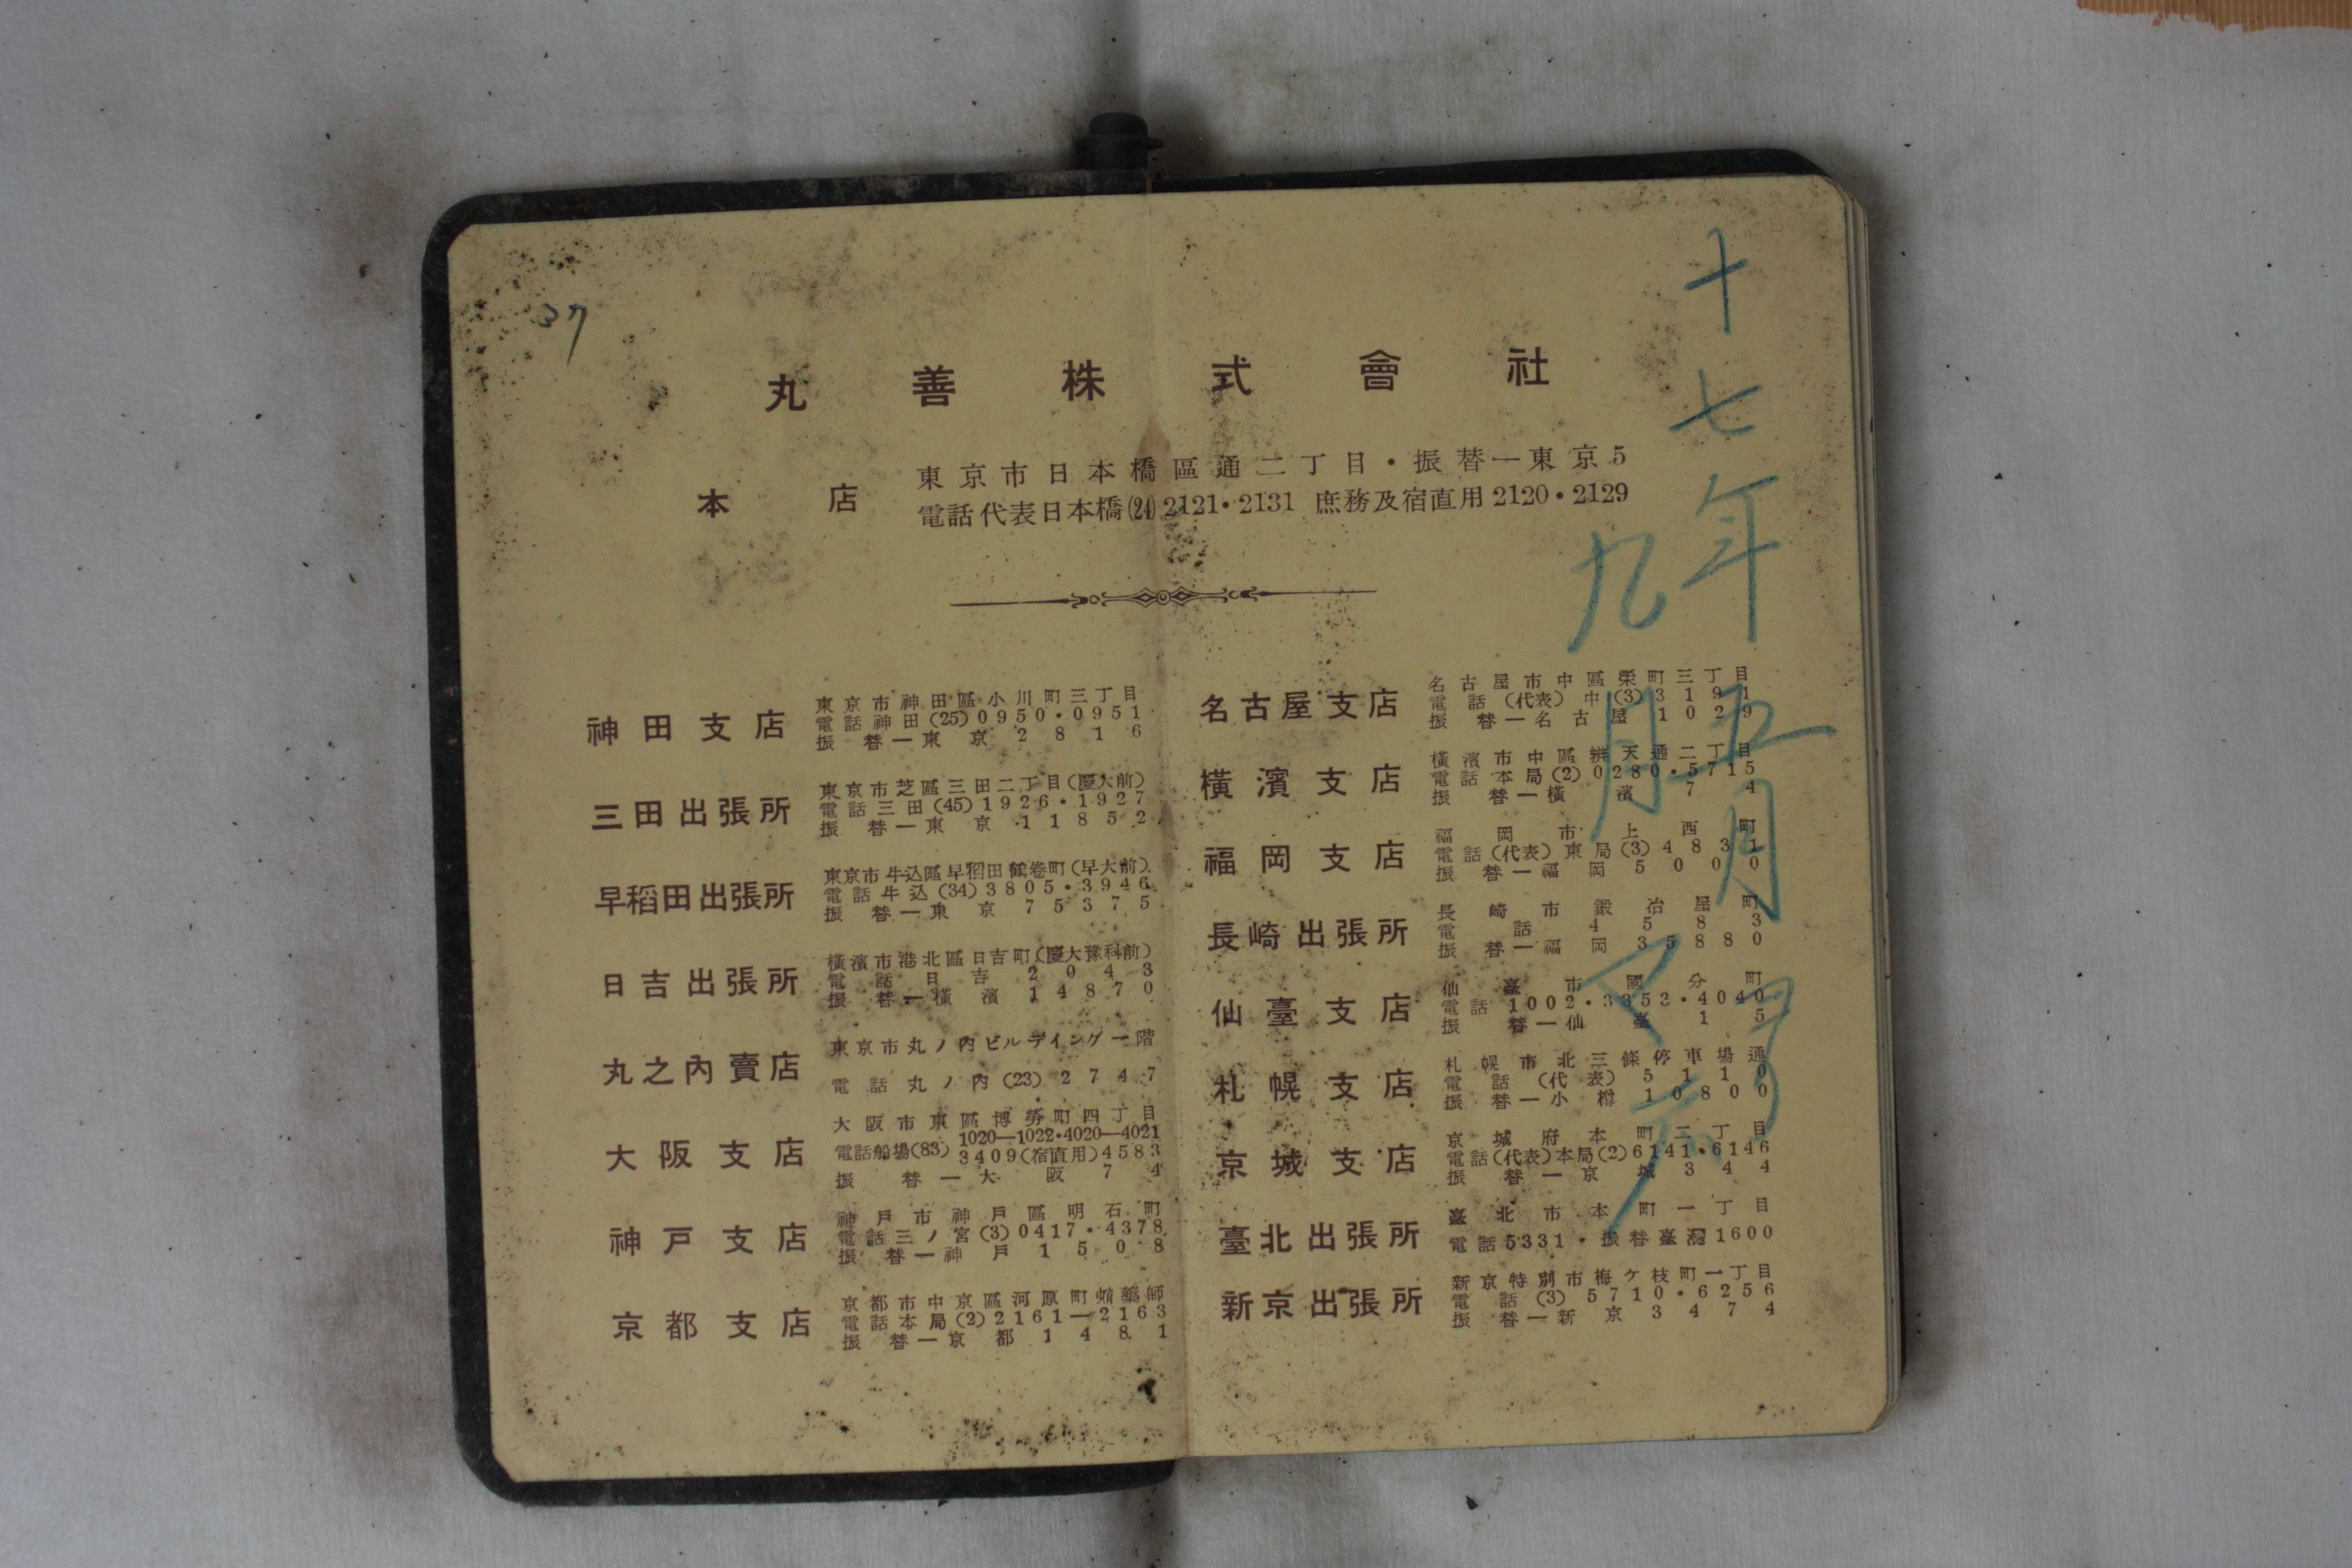 37
丸善株式會社
本店
東京市日本橋區通二丁目・振替一東京5
電話代表日本橋(24)2121・2131 庶務及宿直用2120・2129
神田支店
東京市神田區小川町三丁目
電話神田(25)0950・0951
振替一東京2816
三田出張所
東京市芝區三田二丁目(慶大前)
電話三田(45)1926・1927
振替一東京11852
早稻田出張所
東京市牛込區早稻田鶴卷町(早大前)
電話牛込(34)3805・3946
振替一東京75375
日吉出張所
橫濱市港北區日吉町(慶大豫科前)
電話日吉2043
振替一橫濱14870
丸之內賣店
東京市丸ノ內ビルデイング一階
電話丸ノ內(23)2747
大阪支店
大阪市東區博勞町四丁目
電話船場(83)1020—1022・4020—4021
3409(宿直用)4583
振替一大阪74
神戸支店
神戸市神戸區明石町
電話三ノ宮(3)0417・4378
振替一神戸1508
京都支店
京都市中京區河原町蛸藥師
電話本局(2)2161—2163
振替一京都1481
名古屋支店
名古屋市中區榮町三丁目
電話(代表)中(3)3191
振替一名古屋1029
橫濱支店
橫濱市中區辨天通二丁目
電話本局(2)0280・5715
振替一橫濱74
福岡支店
福岡市上西町
電話(代表)東局(3)4831
振替一福岡5000
長崎出張所
長崎市鍛冶屋町
電話4583
振替一福岡35880
仙臺支店
仙臺市國分町
電話1002・3353・4040
振替一仙臺15
札幌支店
札幌市北三條停車場通
電話(代表)5110
振替一小樽10800
京城支店
京城府本町二丁目
電話(代表)本局(2)6141・6146
振替一京城344
臺北出張所
臺北市本町一丁目
電話5331・振替臺灣1600
新京出張所
新京特別市梅ケ枝町一丁目
電話(3)5710・6256
振替一新京3474
十七年五月ヨリ
九月マデ